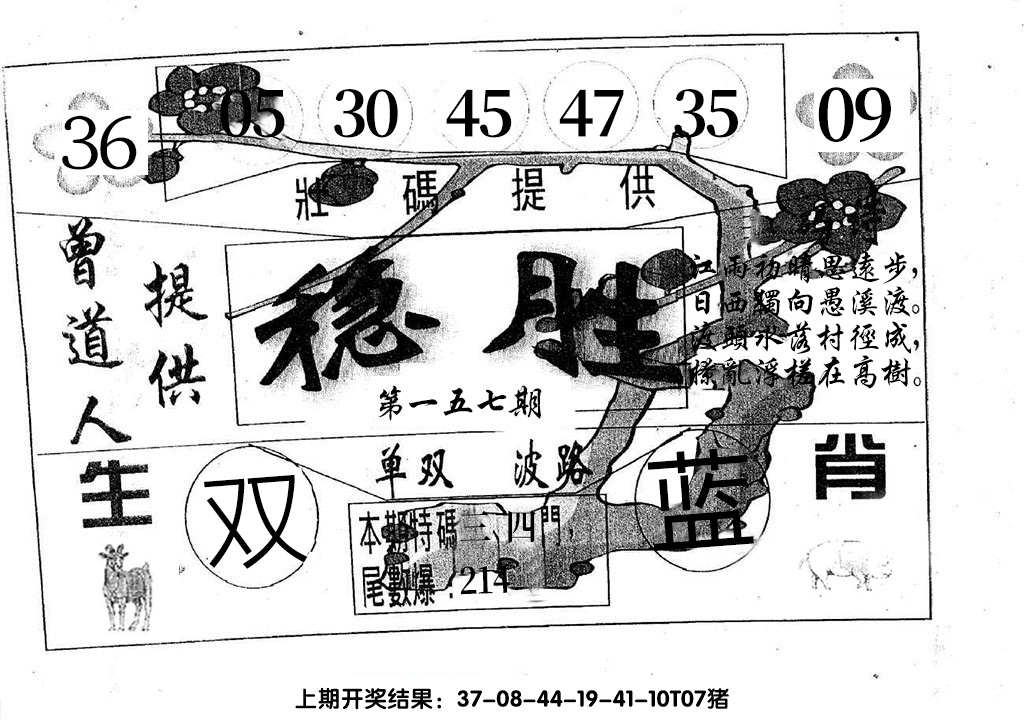 36 05 30 45 47 35 09
壯碼提供
曾道人
提供
稳胜
第一五七期
江雨初晴思遠步，
日西獨向愚溪渡。
渡頭水落村徑成，
撩亂浮槎在高樹。
单双 波路
生肖
双
蓝
本期特碼三、四門，
尾數爆：214
上期开奖结果：37-08-44-19-41-10T07猪